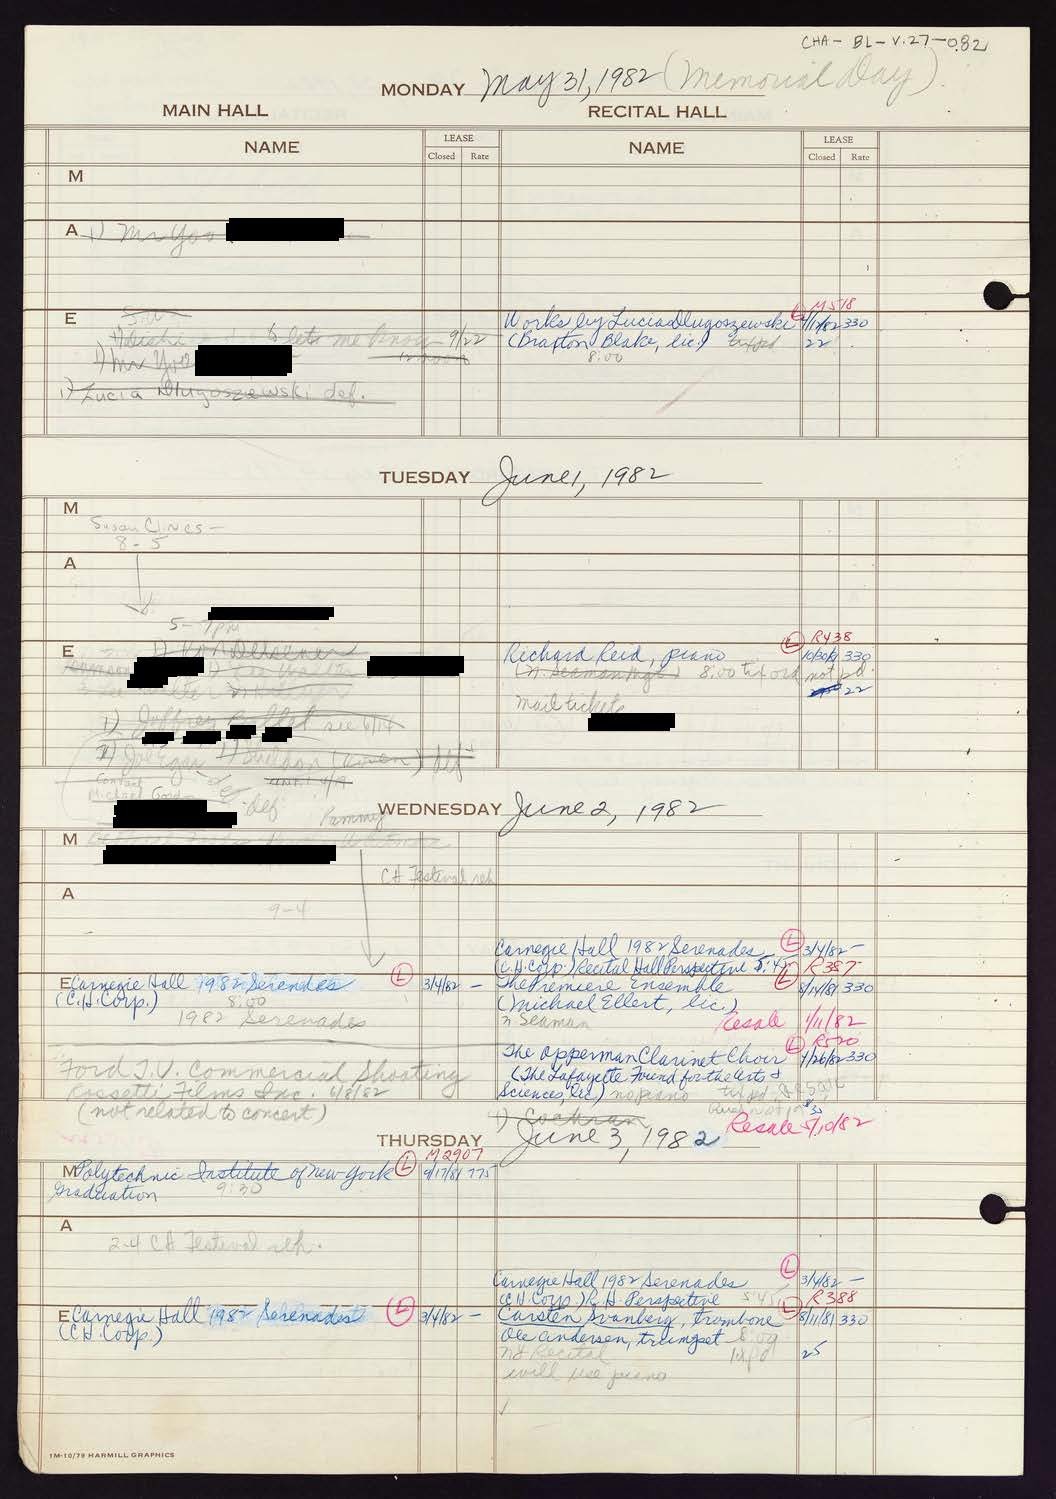 CHA - BL - V.27 - 082
MONDAY May 31, 1982 (Memorial Day)
MAIN HALL RECITAL HALL
NAME LEASE NAME LEASE
Closed Rate Closed Rate
M
A 1) Mr Yoo
E
let me know 9/22
1) Mr Yoo
1) Lucia Dlugoszewski def.
L M518
Works by Lucia Dlugoszewski 330
(Braxton Blake, lic.) tixpd 22
8:00
TUESDAY June 1, 1982
M
Susan Clines -
8-5
A
5-7pm
E
L R438
Richard Reid, piano 10/30/81 330
(N. Seaman Mgt) 8:00 tix ord not pd.
22
Mail tickets
1) Jeffrey see 6/14
1) Sheldon def
Contact
Michael Gordon
def Pammy
WEDNESDAY June 2, 1982
M
CH Festival reh
A
9-4
Carnegie Hall 1982 Serenades L 3/4/82 -
(C.H. Corp.) Recital Hall Perspective 5:45 R387
E Carnegie Hall 1982 Serenades L 3/4/82 -
(C.H. Corp.) 8:00
1982 Serenades
The Premiere Ensemble L 8/14/81 330
(Michael Ellert, lic.)
N Seaman Resale 1/11/82
L R520
The Opperman Clarinet Choir 4/26/82 330
(The Lafayette Found for the Arts &
Sciences, lic.) no piano
Ford T.V. Commercial Shooting
Rossetti Films Inc. 6/8/82
(not related to concert)
1) Cochran
Resale 5/10/82
THURSDAY June 3, 1982
M Polytechnic Institute of New York L M2907 9/17/81 775
Graduation 9:30
A
2-4 CH Festival reh.
L
Carnegie Hall 1982 Serenades 3/4/82 -
(C.H. Corp.) R.H. Perspective 5:45 R388
E Carnegie Hall 1982 Serenades L 3/4/82 -
(C.H. Corp.)
L
Carsten Svanberg, trombone 8/11/81 330
Ole Andersen, trumpet 8:00
NY Recital tixpd 25
will use piano
1M-10/79 HARMILL GRAPHICS